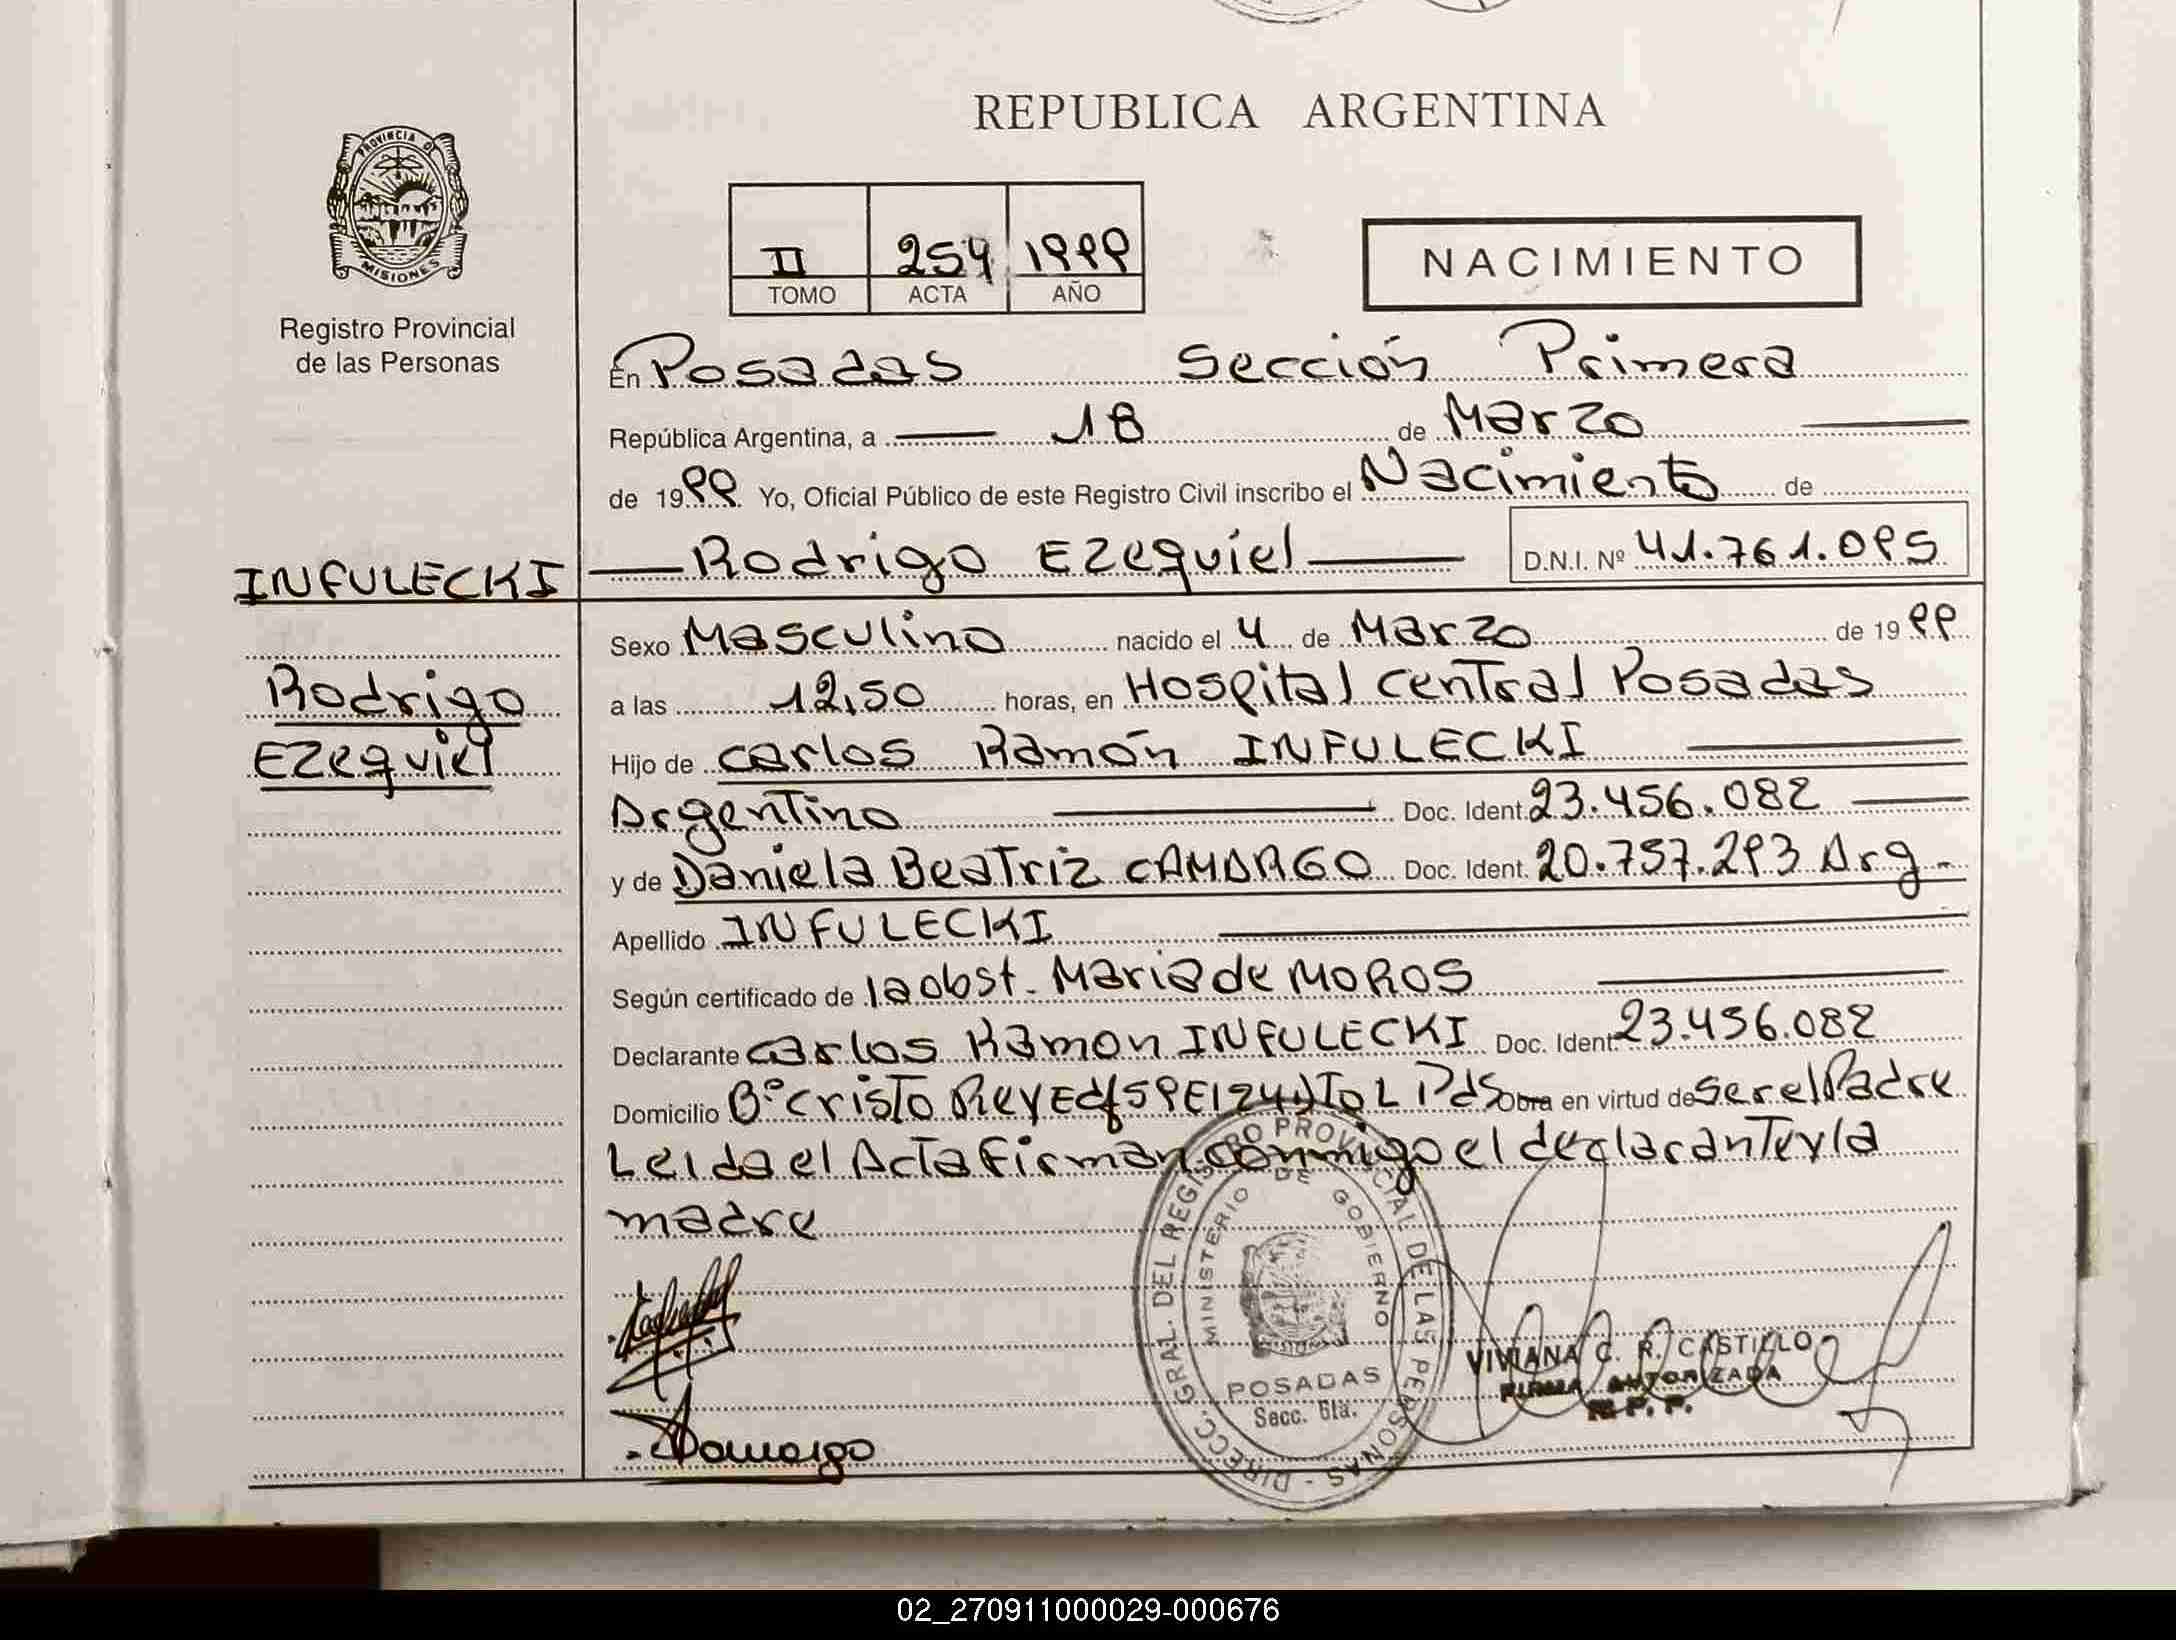 REPUBLICA ARGENTINA
PROVINCIA DE
MISIONES
Registro Provincial
de las Personas
II 254 1999
TOMO ACTA AÑO
NACIMIENTO
En Posadas Sección Primera
República Argentina, a 18 de Marzo
de 1999 Yo, Oficial Público de este Registro Civil inscribo el Nacimiento de
INFULECKI
Rodrigo Ezequiel D.N.I. Nº 41.761.095
Rodrigo
Ezequiel
Sexo Masculino nacido el 4 de Marzo de 1999
a las 12,50 horas, en Hospital Central Posadas
Hijo de Carlos Ramón INFULECKI
Argentino Doc. Ident. 23.456.082
y de Daniela Beatriz CAMARGO Doc. Ident. 20.757.293 Arg.
Apellido INFULECKI
Según certificado de la obst. Maria de MOROS
Declarante Carlos Ramon INFULECKI Doc. Ident. 23.456.082
Domicilio Bº Cristo Rey Edf 5 PE124 Pds Obra en virtud de ser el Padre
Leida el Acta firman conmigo el declarante y la
madre
DIRECC. GRAL. DEL REGISTRO PROVINCIAL DE LAS PERSONAS
MINISTERIO DE GOBIERNO
POSADAS
Secc. 6ta.
VIVIANA C. R. CASTILLO
FIRMA AUTORIZADA
R. P. P.
Camargo
02_270911000029-000676